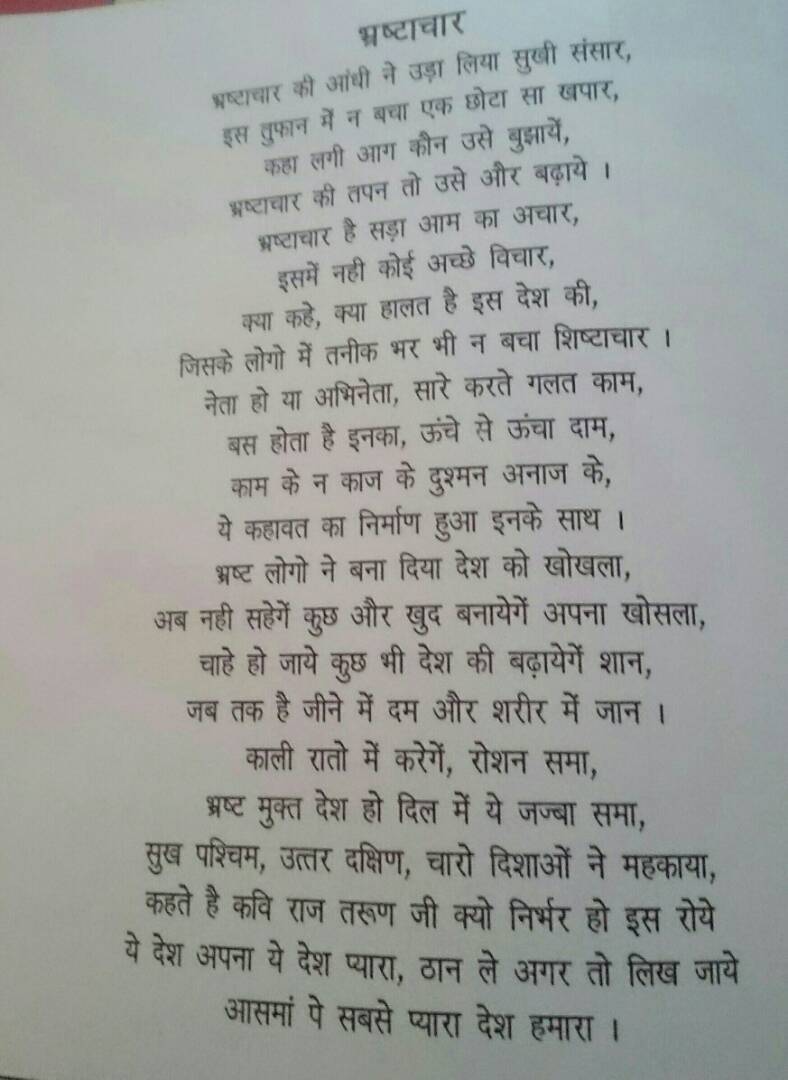 भ्रष्टाचार
भ्रष्टाचार की आंधी ने उड़ा लिया सुखी संसार,
इस तुफान में न बचा एक छोटा सा खपार,
कहा लगी आग कौन उसे बुझायें,
भ्रष्टाचार की तपन तो उसे और बढ़ाये ।
भ्रष्टाचार है सड़ा आम का अचार,
इसमें नही कोई अच्छे विचार,
क्या कहे, क्या हालत है इस देश की,
जिसके लोगो में तनीक भर भी न बचा शिष्टाचार ।
नेता हो या अभिनेता, सारे करते गलत काम,
बस होता है इनका, ऊंचे से ऊंचा दाम,
काम के न काज के दुश्मन अनाज के,
ये कहावत का निर्माण हुआ इनके साथ ।
भ्रष्ट लोगो ने बना दिया देश को खोखला,
अब नही सहेगें कुछ और खुद बनायेगें अपना खोसला,
चाहे हो जाये कुछ भी देश की बढ़ायेगें शान,
जब तक है जीने में दम और शरीर में जान ।
काली रातो में करेगें, रोशन समा,
भ्रष्ट मुक्त देश हो दिल में ये जज्बा समा,
सुख पश्चिम, उत्तर दक्षिण, चारो दिशाओं ने महकाया,
कहते है कवि राज तरूण जी क्यो निर्भर हो इस रोये
ये देश अपना ये देश प्यारा, ठान ले अगर तो लिख जाये
आसमां पे सबसे प्यारा देश हमारा ।